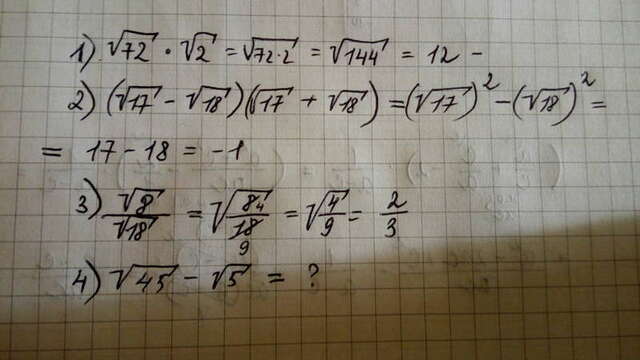 1) √72 · √2 = √72·2 = √144 = 12 -
2) (√17 - √18)(√17 + √18) = (√17)² - (√18)² =
= 17 - 18 = -1
3) √8/√18 = √8/18 = √4/9 = 2/3
4) √45 - √5 = ?